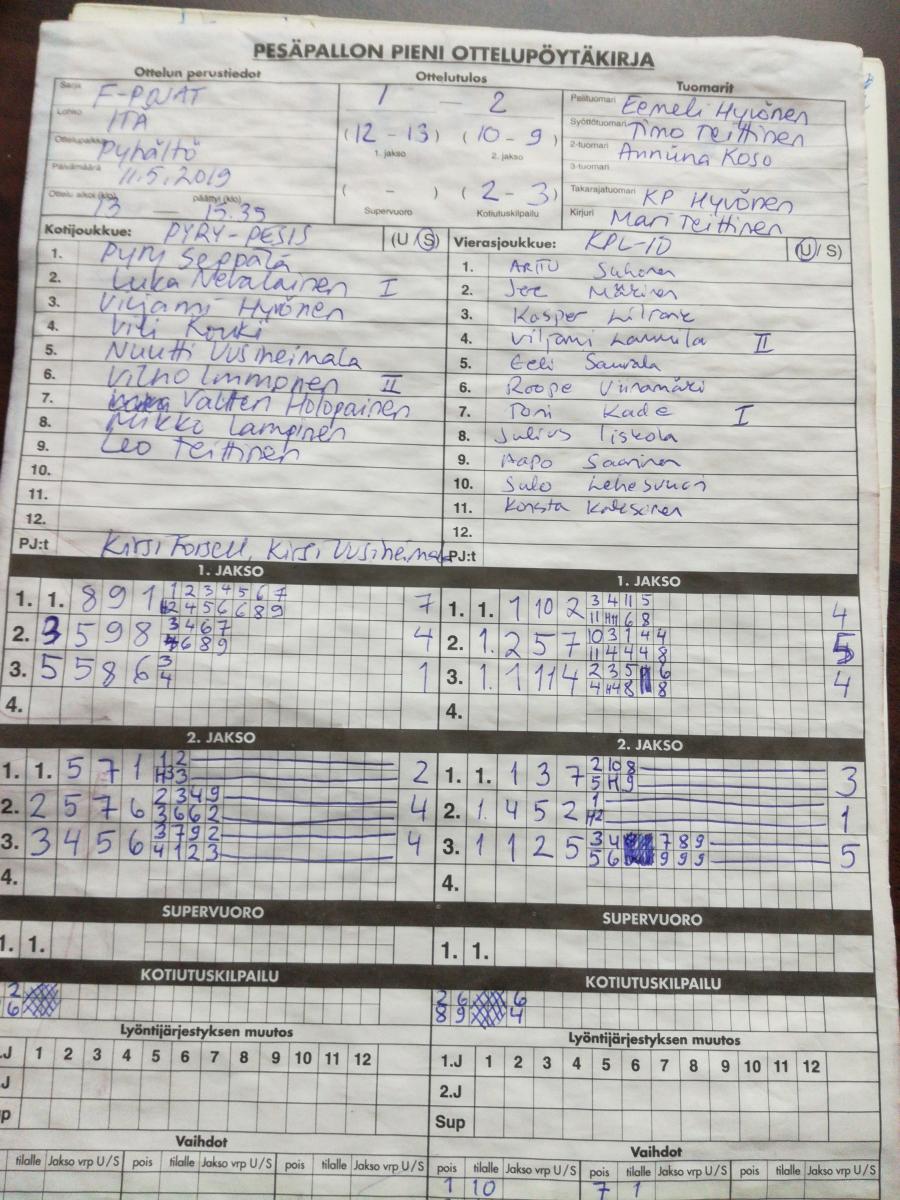 PESÄPALLON PIENI OTTELUPÖYTÄKIRJA
Ottelun perustiedot Ottelutulos Tuomarit
Sarja F-POJAT 1 — 2 Pelituomari Eemeli Hyvönen
Lohko ITÄ Syöttötuomari Timo Teittinen
(12 - 13) (10 - 9) 2-tuomari Anniina Koso
Ottelupaikka Pyhältö 1. jakso 2. jakso 3-tuomari
Päivämäärä 11.5.2019
( - ) (2 - 3) Takarajatuomari KP Hyvönen
Ottelu alkoi (klo) päättyi (klo) 13 — 15.35 Supervuoro Kotiutuskilpailu Kirjuri Mari Teittinen
Kotijoukkue: PYRY-PESIS (U/S) Vierasjoukkue: KPL-10 (U/S)
1. Pyry Seppälä 1. Arttu Suhonen
2. Luka Nevalainen I 2. Joe Mäkinen
3. Viljami Hyvönen 3. Kasper
4. Vili Kouki 4. Viljami II
5. Nuutti Uusiheimala 5. Eeli
6. Vilho Immonen II 6. Roope Viinamäki
7. Valtteri Holopainen 7. Toni Kade I
8. Mikko Lampinen 8. Julius Iiskola
9. Leo Teittinen 9. Aapo Saarinen
10. 10. Sulo Lehesvuori
11. 11. Konsta
12. 12.
PJ:t Kirsi Forsell, Kirsi Uusiheimala PJ:t
1. JAKSO 1. JAKSO
1. 1. 8 9 1 1 2 3 4 5 6 7 7 1. 1. 1 10 2 3 4 11 5 4
H2 4 5 6 6 8 9 11 H11 6 8
2. 3 5 9 8 3 4 6 7 4 2. 1. 2 5 7 10 3 1 4 4 5
4 6 8 9 11 4 4 4 8
3. 5 5 8 6 3 1 3. 1. 1 11 4 2 3 5 6 4
4 4 H4 8 8
4. 4.
2. JAKSO 2. JAKSO
1. 1. 5 7 1 1 2 2 1. 1. 1 3 7 2 10 8 3
H3 3 5 H 9
2. 2 5 7 6 2 3 4 9 4 2. 1. 4 5 2 1 1
3 6 6 2 H2
3. 3 4 5 6 3 7 9 2 4 3. 1 1 2 5 3 4 7 8 9 5
4 1 2 3 5 6 9 9 9
4. 4.
SUPERVUORO SUPERVUORO
1. 1. 1. 1.
KOTIUTUSKILPAILU KOTIUTUSKILPAILU
2 2 6 6
6 8 9 4
Lyöntijärjestyksen muutos Lyöntijärjestyksen muutos
.J 1 2 3 4 5 6 7 8 9 10 11 12 1.J 1 2 3 4 5 6 7 8 9 10 11 12
J 2.J
p Sup
Vaihdot Vaihdot
tilalle Jakso vrp U/S pois tilalle Jakso vrp U/S pois tilalle Jakso vrp U/S pois tilalle Jakso vrp U/S pois tilalle Jakso vrp U/S pois tilalle Jakso vrp U/S
1 10 7 1